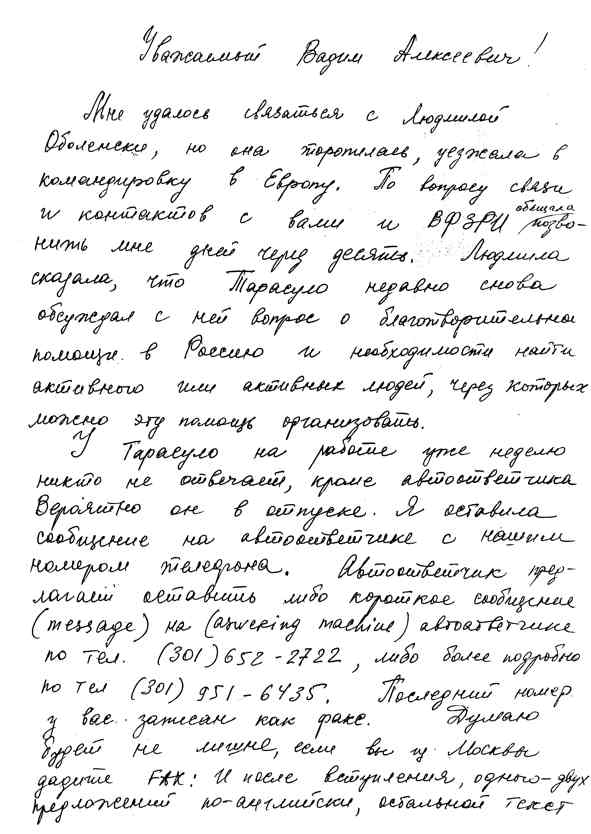 Уважаемый Вадим Алексеевич!
Мне удалось связаться с Людмилой
Оболенски, но она торопилась, уезжала в
командировку в Европу. По вопросу связи
и контактов с вами и ВФЗРИ обещала позво-
нить мне дней через десять. Людмила
сказала, что Тарасуло недавно снова
обсуждал с ней вопрос о благотворительно
помощи в Россию и необходимости найти
активного или активных людей, через которых
можно эту помощь организовать.
У Тарасуло на работе уже неделю
никто не отвечает, кроме автоответчика
Вероятно он в отпуске. Я оставила
сообщение на автоответчике с нашим
номером телефона. Автоответчик пред-
лагает оставить либо короткое сообщение
(message) на (aswering machine) автоответчике
по тел. (301) 652-2722, либо более подробно
по тел (301) 951-6435. Последний номер
у вас записан как факс. Думаю
будет не лишне, если вы из Москвы
дадите FAX: И после вступления, одного-двух
предложений по-английски, остальной текст